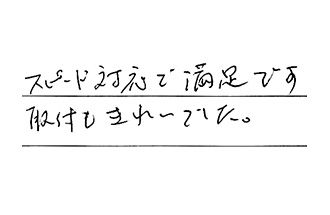 スピード対応で満足です
取付もきれいでした。